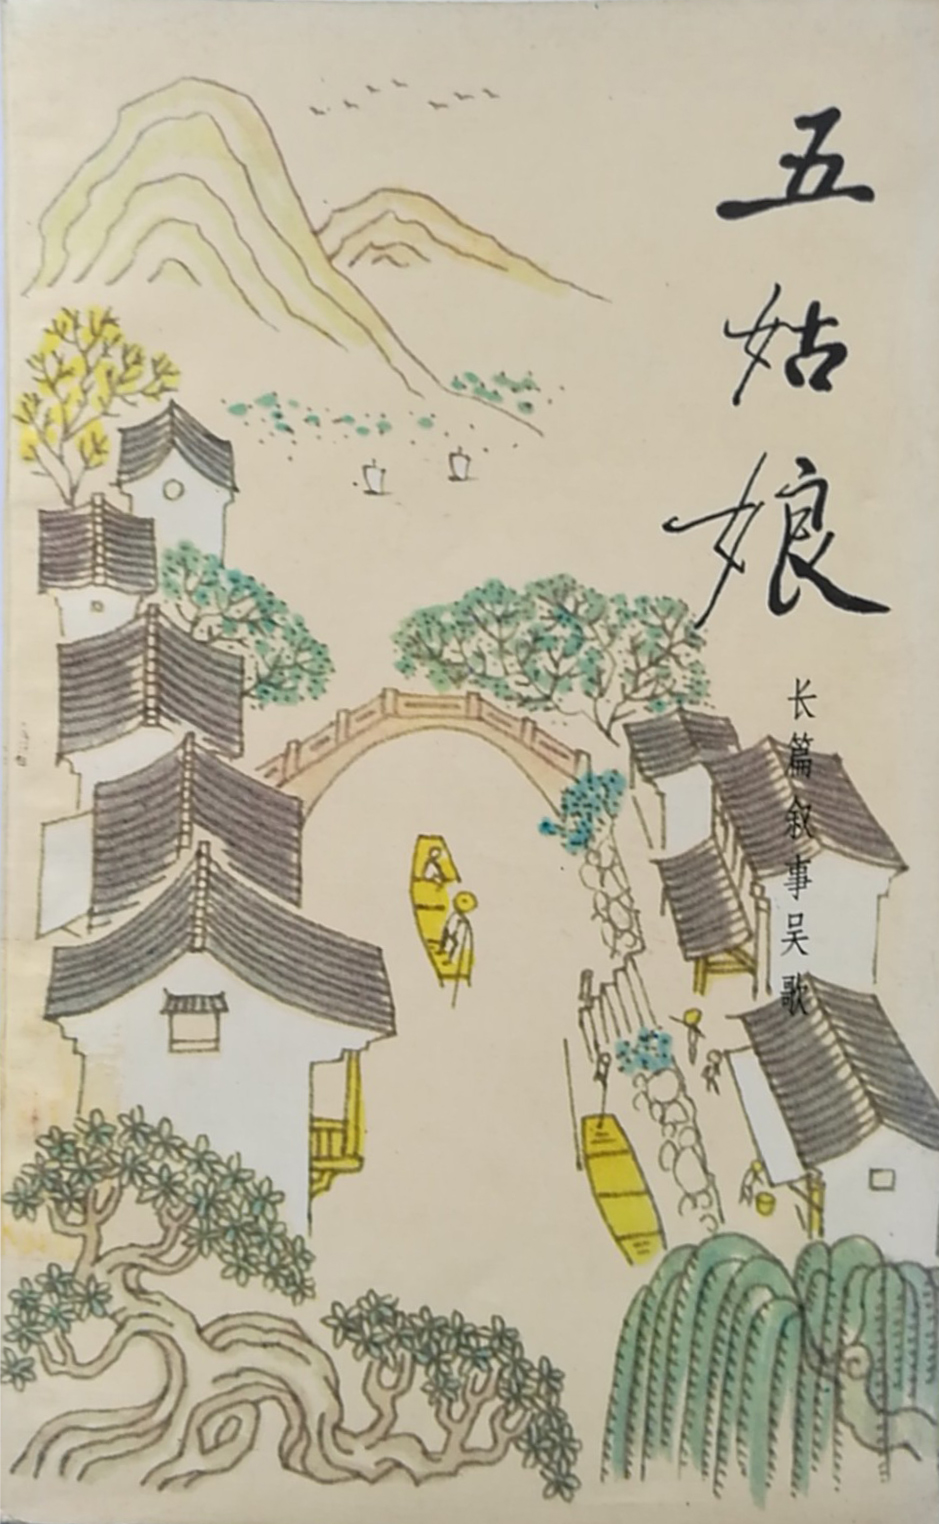 五姑娘
长篇叙事吴歌